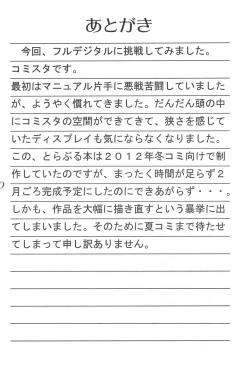 あとがき
今回、フルデジタルに挑戦してみました。
コミスタです。
最初はマニュアル片手に悪戦苦闘していました
が、ようやく慣れてきました。だんだん頭の中
にコミスタの空間ができてきて、狭さを感じて
いたディスプレイも気にならなくなりました。
この、とらぶる本は2012年冬コミ向けで制
作していたのですが、まったく時間が足らず2
月ごろ完成予定にしたのにできあがらず・・・。
しかも、作品を大幅に描き直すという暴挙に出
てしまいました。そのために夏コミまで待たせ
てしまって申し訳ありません。